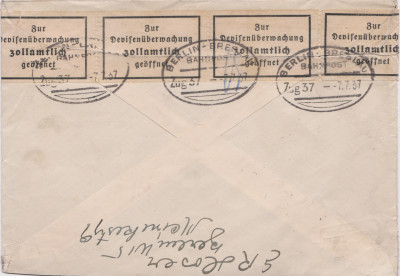 Zur
Devisenüberwachung
zollamtlich
geöffnet
Zur
Devisenüberwachung
zollamtlich
geöffnet
Zur
Devisenüberwachung
zollamtlich
geöffnet
Zur
Devisenüberwachung
zollamtlich
geöffnet
Zug 37 -7.7.37
BERLIN-BRESLAU
BAHNPOST
Zug 37 -7.7.37
BERLIN-BRESLAU
BAHNPOST
Zug 37 -7.7.37
Berlin W15